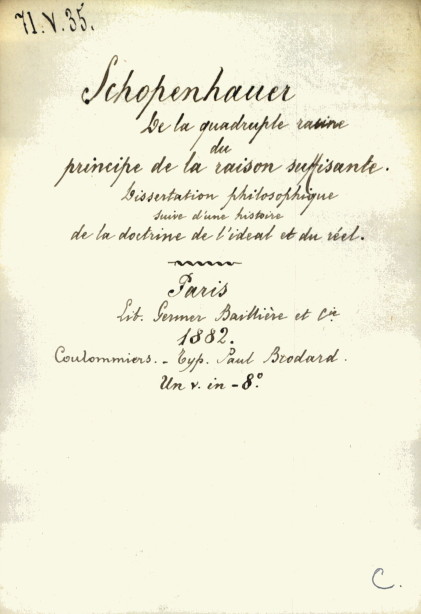 71.V.35.
Schopenhauer
De la quadruple racine
du
principe de la raison suffisante.
Dissertation philosophique
suive d'une histoire
de la doctrine de l'ideal et du réel.
Paris
Lib. Germer Baillière et Cie
1882.
Coulommiers. - Typ. Paul Brodard.
Un v. in-8º.
C.